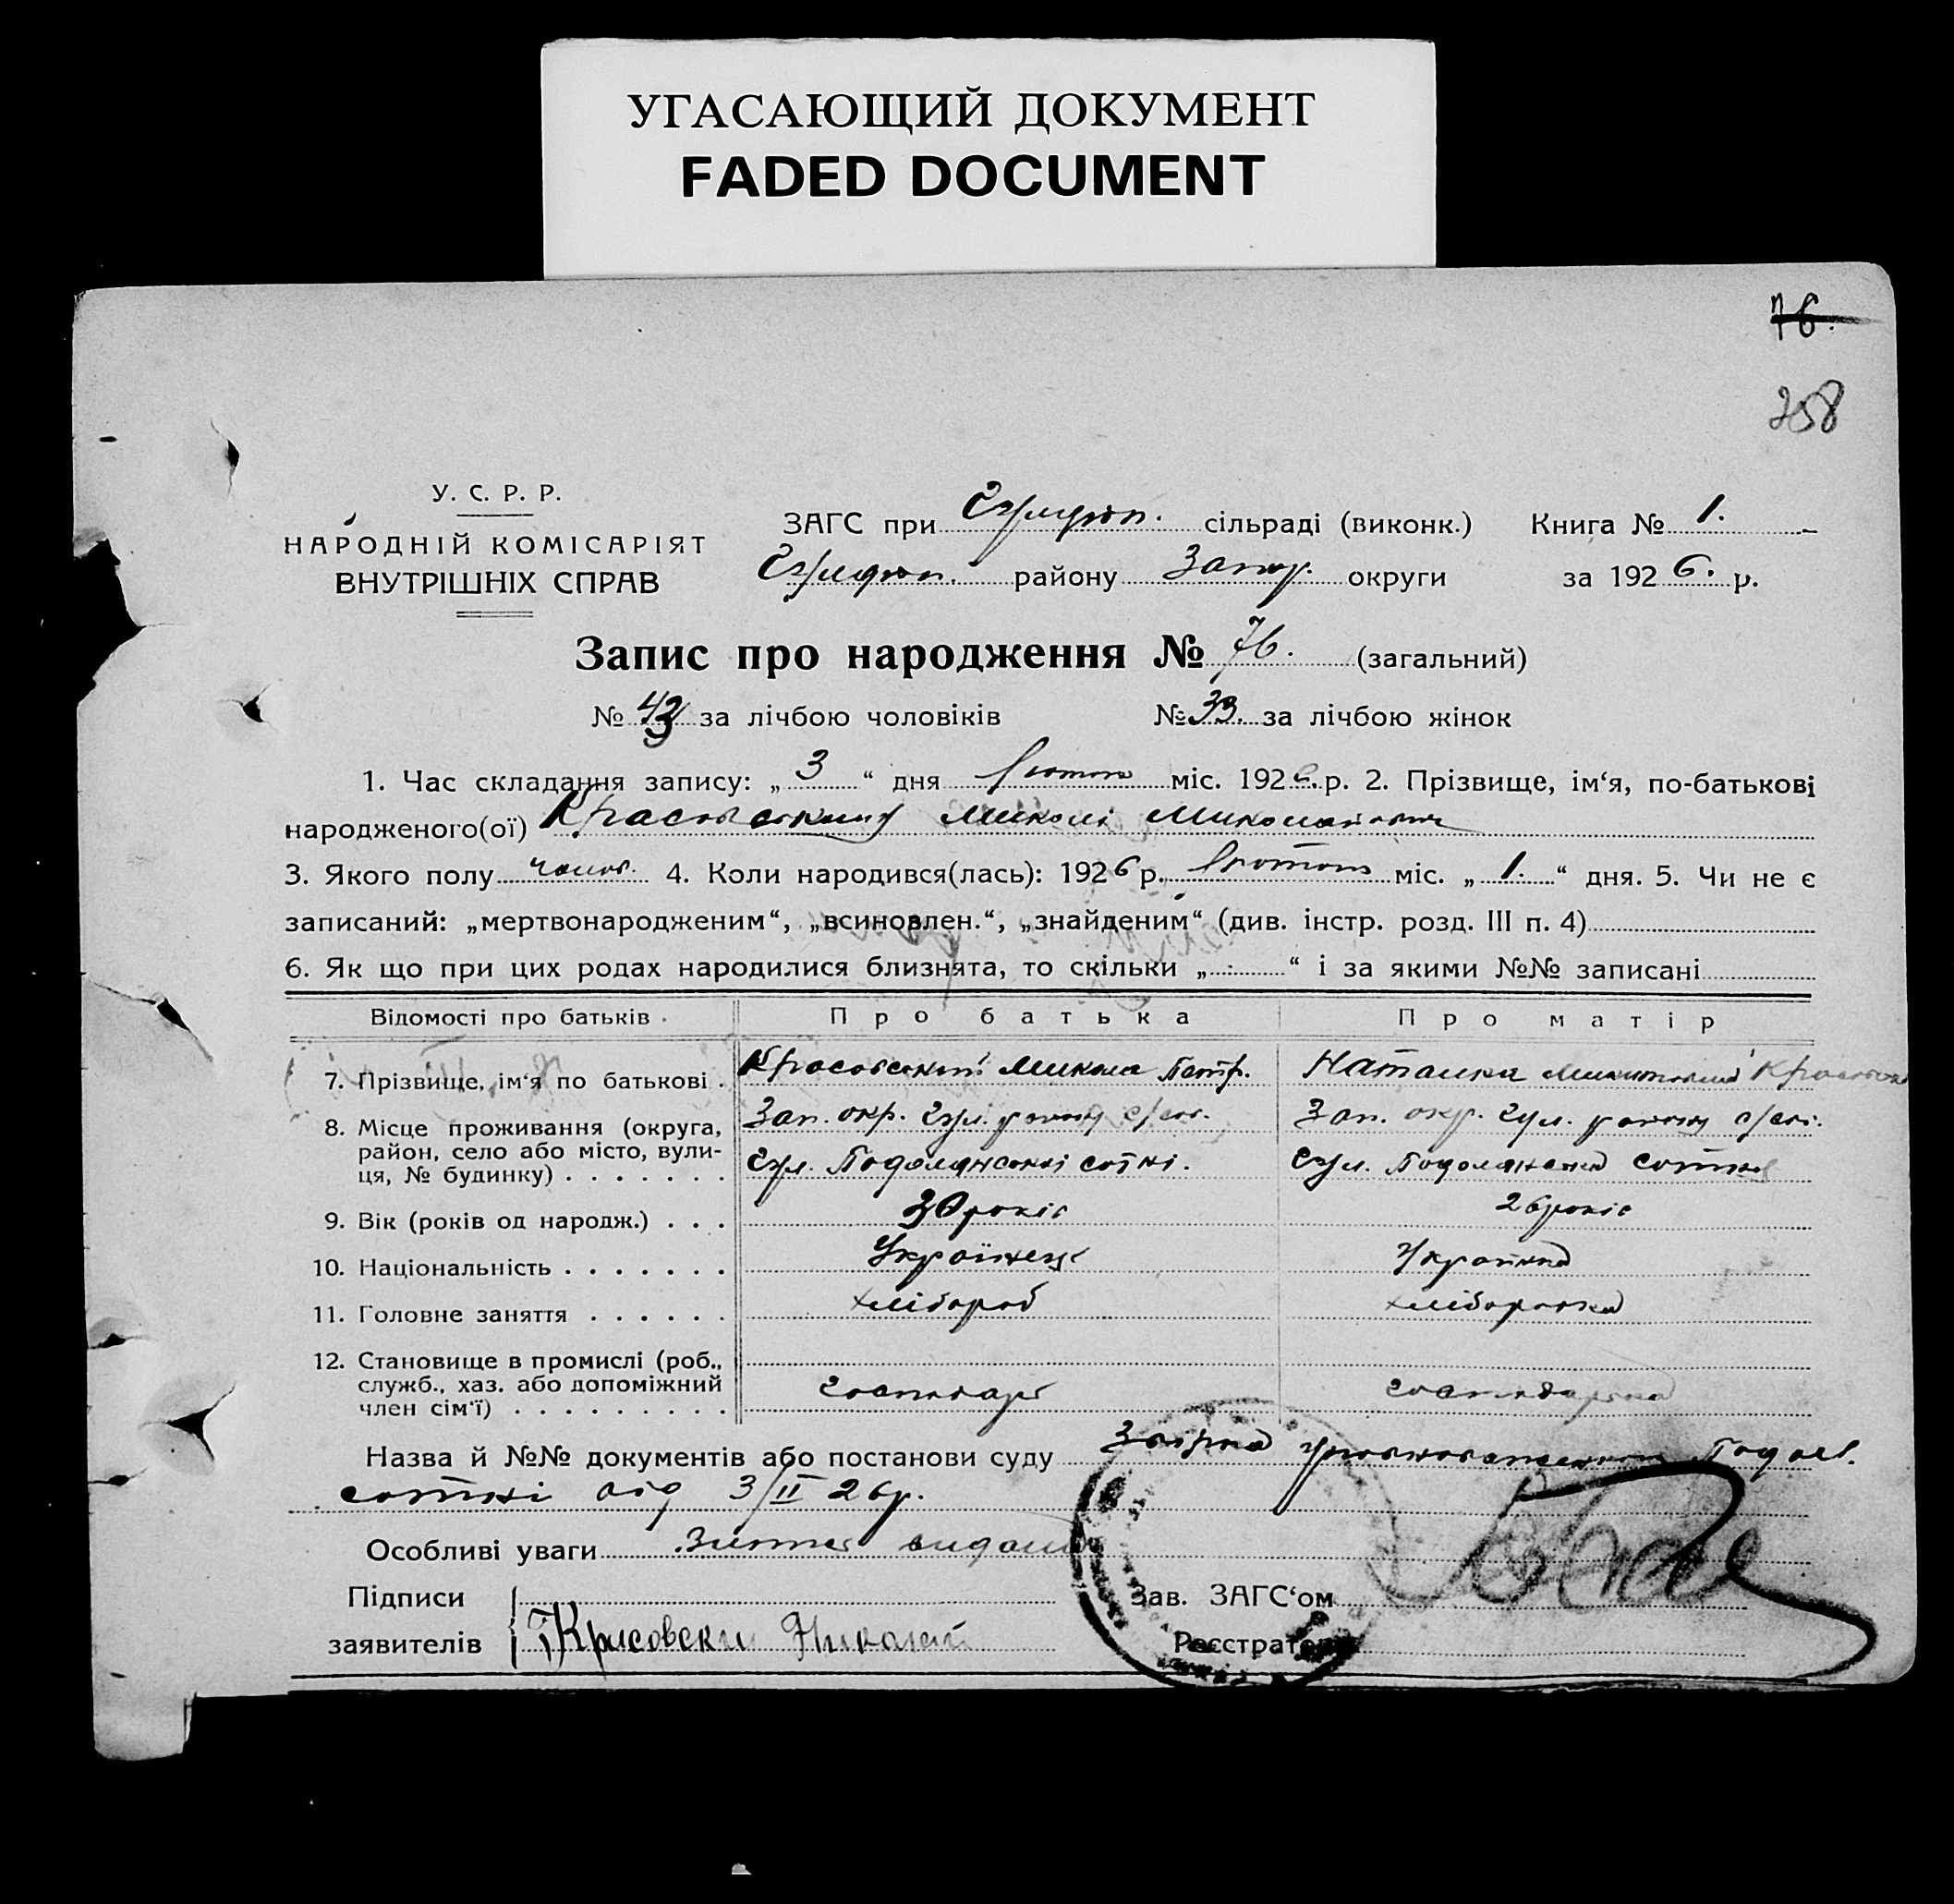 УГАСАЮЩИЙ ДОКУМЕНТ
FADED DOCUMENT
76.
258
У. С. Р. Р.
НАРОДНІЙ КОМІСАРІЯТ
ВНУТРІШНІХ СПРАВ
ЗАГС при сільраді (виконк.) Книга № 1.
району Запор. округи за 1926. р.
Запис про народження № 76. (загальний)
№ 43 за лічбою чоловіків № 33. за лічбою жінок
1. Час складання запису: „ 3 “ дня лютого міс. 1926.р. 2. Прізвище, ім‘я, по-батькові
народженого(ої) Миколі Миколайович
3. Якого полу чолов. 4. Коли народився(лась): 1926 р. лютого міс. „ 1. “ дня. 5. Чи не є
записаний: „мертвонародженим“, „всиновлен.“, „знайденим“ (див. інстр. розд. III п. 4)
6. Як що при цих родах народилися близнята, то скільки „ - “ і за якими №№ записані
Відомості про батьків Про батька Про матір
7. Прізвище, ім‘я по батькові . Красовський Микола Петр. Наталка
8. Місце проживання (округа, Зап. окр. с/сов. Зап. окр.
район, село або місто, вули- Гул. Подолянські сотні. Гул. Подолянська сотня
ця, № будинку) . . . . . . .
9. Вік (років од народж.) . . . 30 років 26 років
10. Національність . . . . . . . Українець Українка
11. Головне заняття . . . . . . хлібороб хліборобка
12. Становище в промислі (роб.,
служб., хаз. або допоміжний господарь господарка
член сім‘ї) . . . . . . . . .
Назва й №№ документів або постанови суду Подол.
сотні від 3/II 26р.
Особливі уваги
Підписи Зав. ЗАГС‘ом
заявителів Красовски Николай Реєстратор